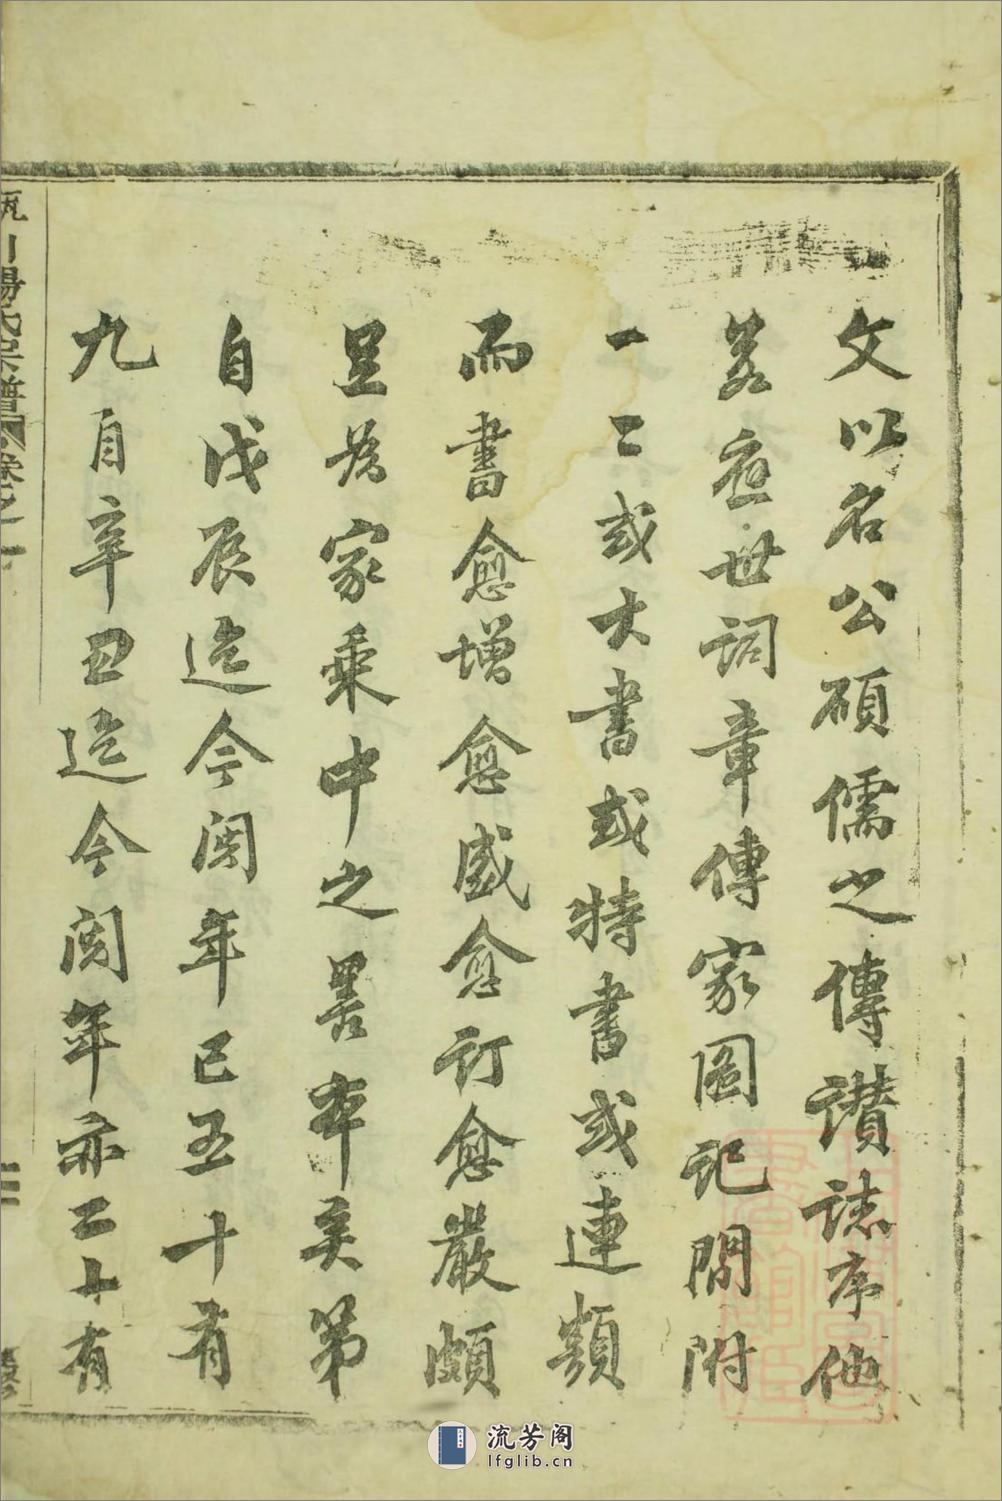 文以名公碩儒之傳讃誌序他
若應世詞章傳家圖記間附
一二或大書或特書或連類
而書愈增愈盛愈訂愈嚴頗
足為家乘中之善本矣第
自戊辰迄今閱年已五十有
九自辛丑迄今閱年亦二十有
楊氏宗譜 卷之一
流芳阁
lfglib.cn